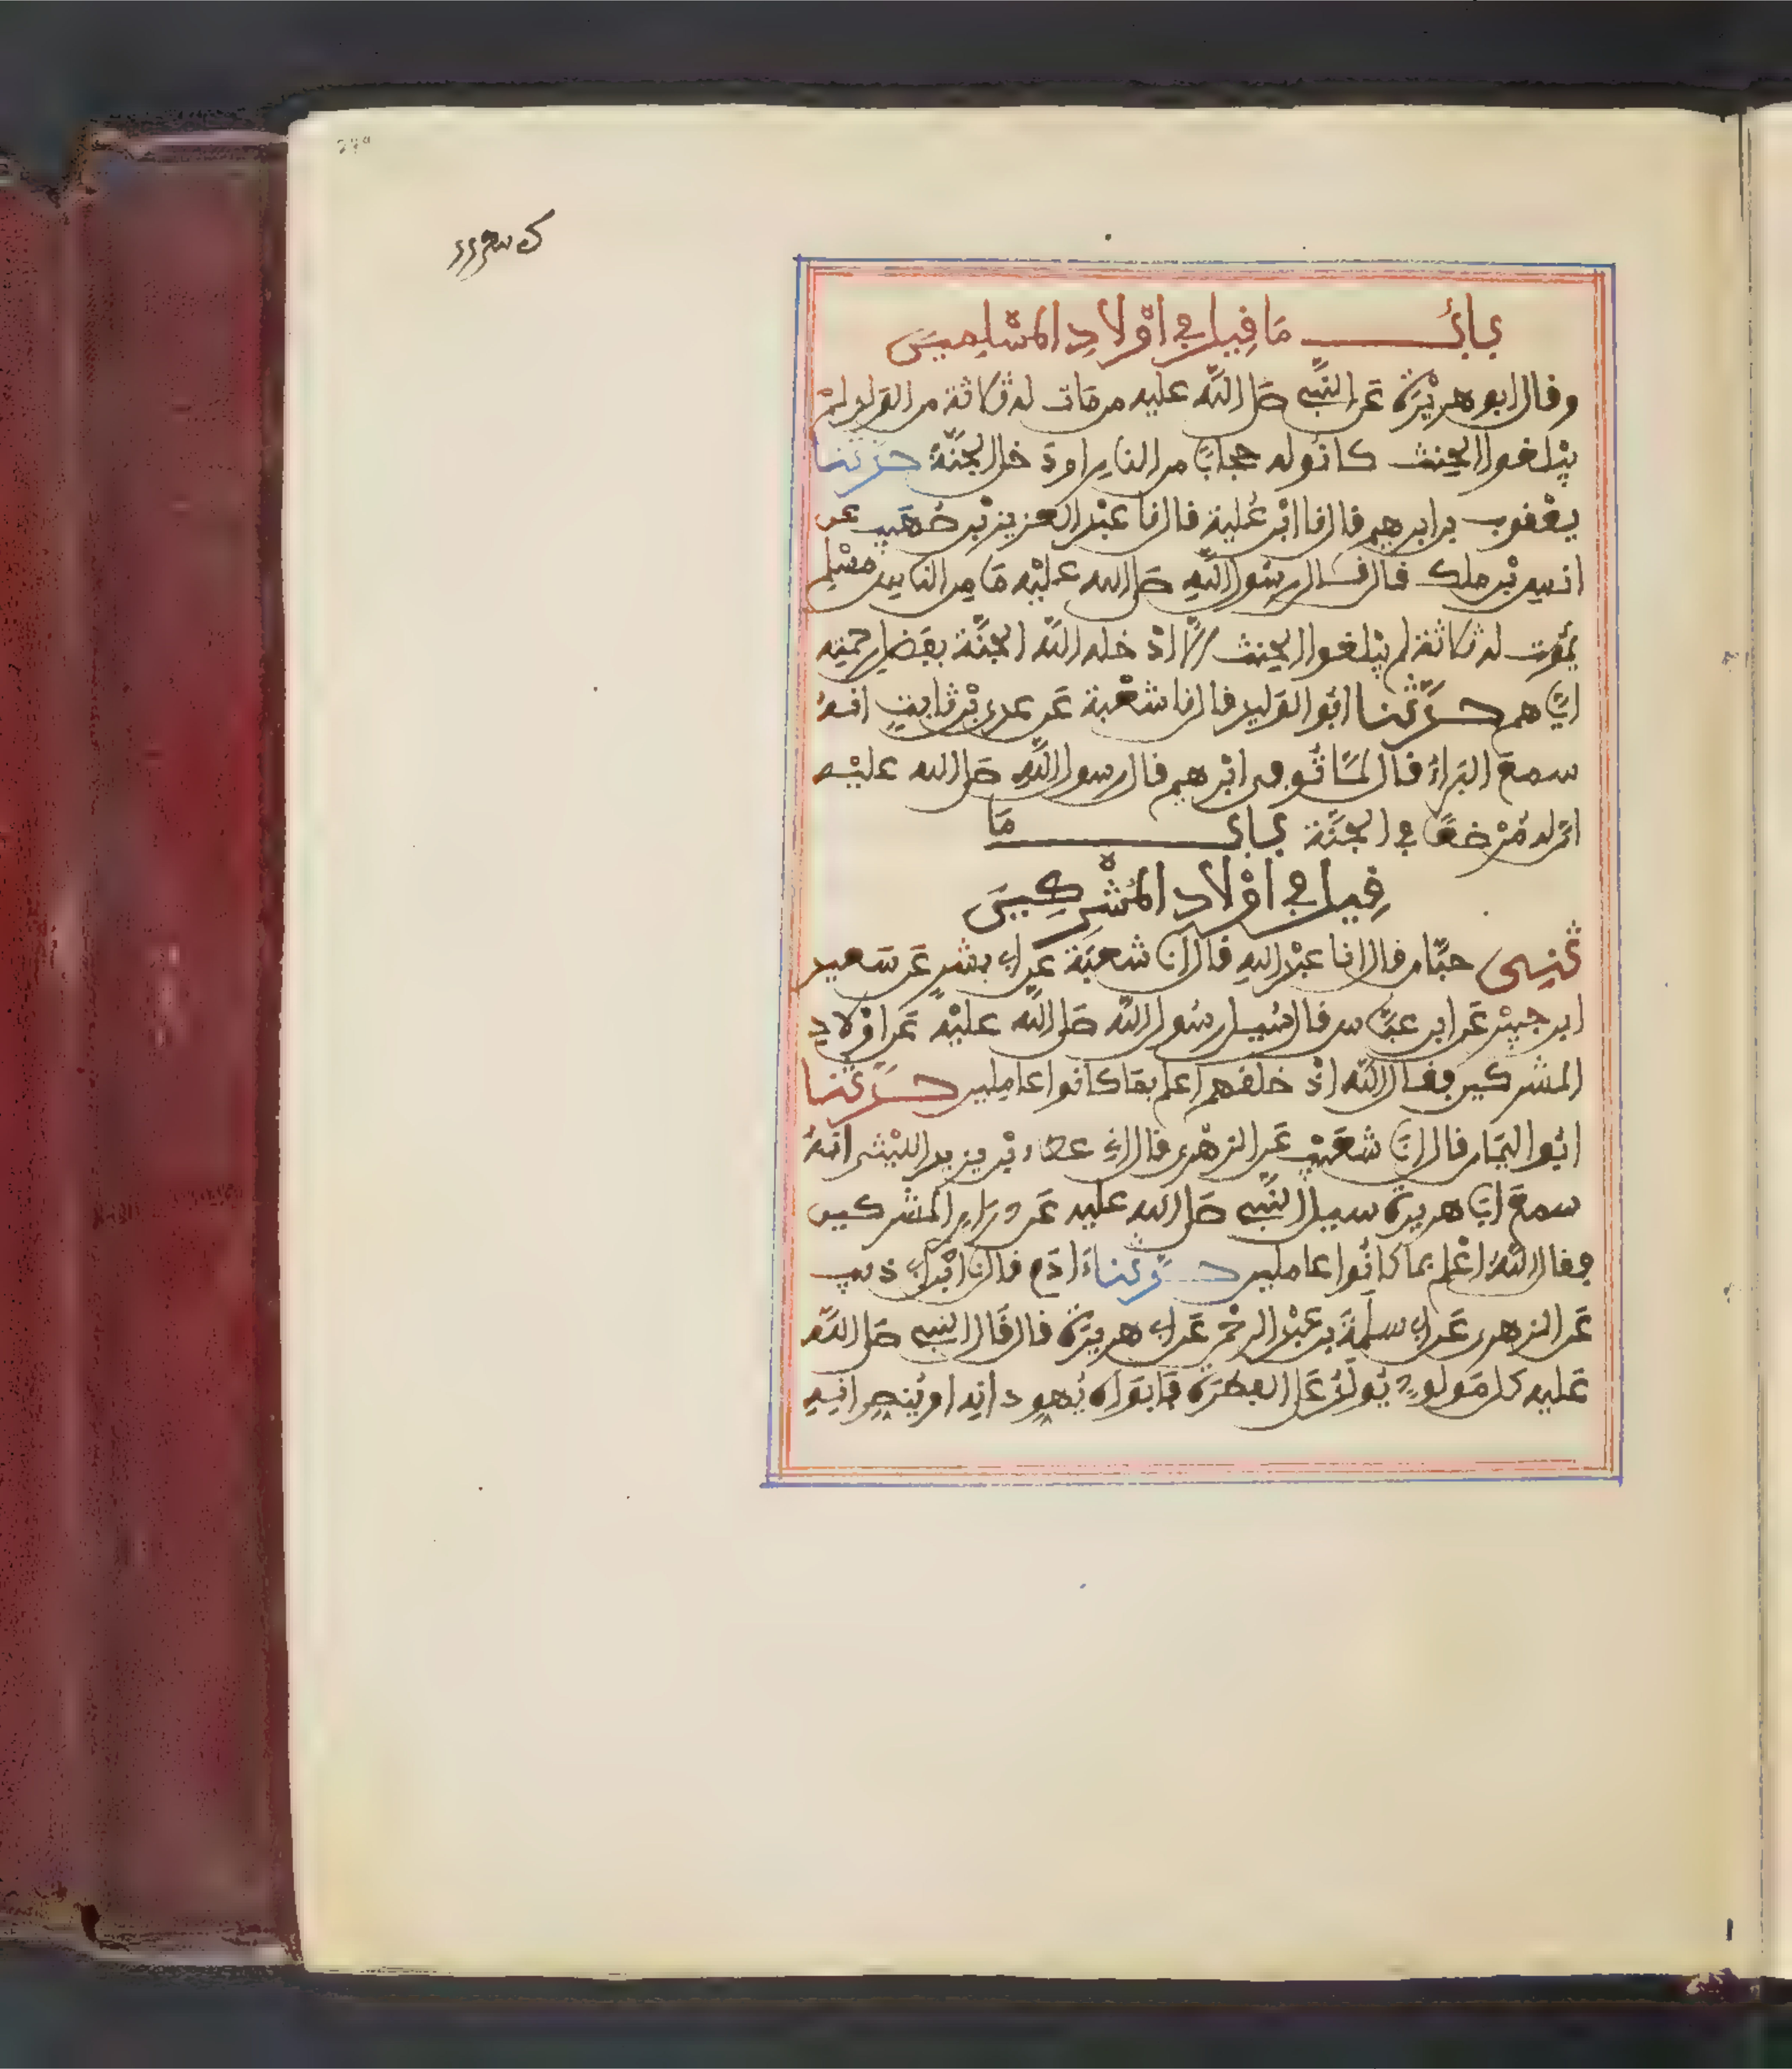 باب مَا قِيلَ في اوْلادِ المسْلِمينَ
وقال ابو هريْرَة عَن النَّبي صَلى اللَّه عليه من مَات له ثلاثة من الوَلد لمْ
يبْلغوا الحِنث كانُو له حجابًا من النار او دَخل الجنَّة حدَّثنا
يعْقوب بن ابرهيم قال نا ابْن عُلية قال نا عبْد العزيز بْن صُهَيب عن
انس بْن ملك قال قال رسُول اللَّهِ صَلى الله عليْه مَا مِن الناس مسْلم
يمُوت له ثلاثة لم يبْلغوا الحِنث الَّا ادْخله اللَّه الجنَّة بفَضل رحمته
اياهم حدَّثنا ابُو الوَليد قال نا شعْبة عَن عدى بْن ثابتٍ انهُ
سمعَ البَراءَ قال لمَّا تُوفى ابْرهيم قال رسول اللَّه صَلى الله عليْه
ان له مُرْضعًا في الجنَّة باب مَا
قِيل في اوْلاد المُشْركِينَ
ثنى حبَّان قال انا عبْد الله قال انا شعبَة عن ابي بشرٍ عَن سَعيد
ابن جبيْر عَن ابن عبَّاس قال سُيل رسُول اللَّه صَلى اللَّه عليْه عَن اوْلادِ
المشركين فقال اللَّه اذْ خلقهم اعلم بمَا كانوا عاملين حدَّثنا
ابُو اليمَان قال انَا شعَيْب عَن الزهْرى قال اني عطاء بْن يزيد الليْثى انهُ
سمعَ ابَا هريرة سيل النَّبي صَلى الله عليه عَن ذراري المشركين
فقال اللَّهُ اعْلم بما كانُوا عاملين حدَّثنا ءادَم قال نا ابْن ابي ذيب
عَن الزهرى عَن ابي سلَمَة بن عَبْد الرحْمن عَن ابي هريرَة قال قَال النبي صَلى اللَّه
عَليه كل مَولودٍ يُولَدُ عَلى الفطرَة فابَواه يُهودانه او يُنصرانِه